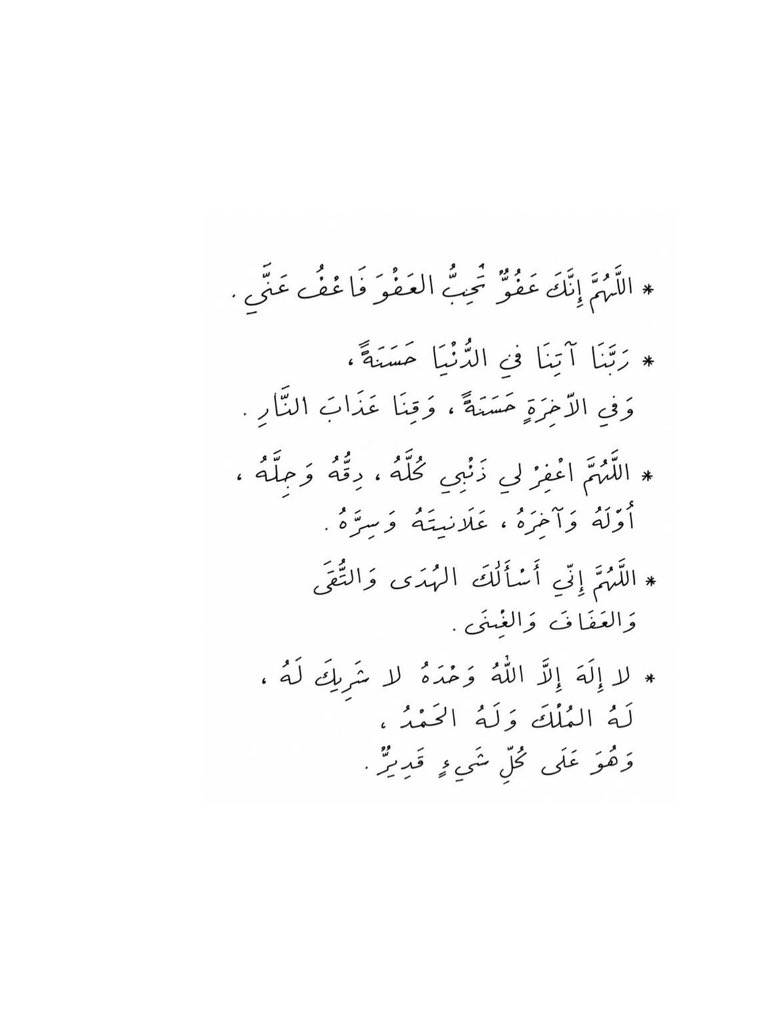 * اللَّهُمَّ إِنَّكَ عَفُوٌّ تُحِبُّ العَفْوَ فَاعْفُ عَنَّي .
* رَبَّنَا آتِنَا في الدُّنْيَا حَسَنَةً ،
وَفي الآخِرَةِ حَسَنَةً ، وَقِنَا عَذَابَ النَّارِ .
* اللَّهُمَّ اغْفِرْ لي ذَنْبِي كُلَّهُ ، دِقُّهُ وَجِلَّهُ ،
أُوَّلَهُ وَآخِرَهُ ، عَلَانيتَهُ وَسِرَّهُ .
* اللَّهُمَّ إِنّي أَسْأَلُكَ الهُدَى وَالتُّقَى
وَالعَفَافَ وَالغِنَى .
* لا إِلَهَ إِلَّا اللّٰهُ وَحْدَهُ لا شَرِيكَ لَهُ ،
لَهُ المُلْكَ وَلَهُ الحَمْدُ ،
وَهُوَ عَلَى كُلِّ شَيءٍ قَدِيرٌ .